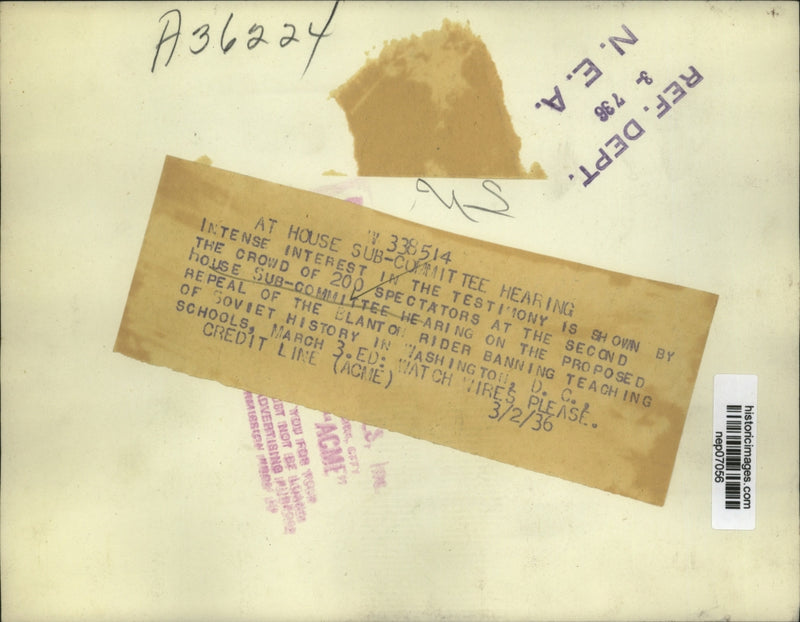 A36224
REF. DEPT.
3- 7 36
N. E. A.
US
W 338514
AT HOUSE SUB-COMMITTEE HEARING
INTENSE INTEREST IN THE TESTIMONY IS SHOWN BY
THE CROWD OF 200 SPECTATORS AT THE SECOND
HOUSE SUB-COMMITTEE HEARING ON THE PROPOSED
REPEAL OF THE BLANTON RIDER BANNING TEACHING
OF SOVIET HISTORY IN WASHINGTON, D. C.,
SCHOOLS, MARCH 3. ED: WATCH WIRES PLEASE.
CREDIT LINE (ACME) 3/2/36
INC.
CITY
"ACME"
YOU FOR YOUR
NOT BE LOANED
ADVERTISING PURPOSES
historicimages.com
nep07056